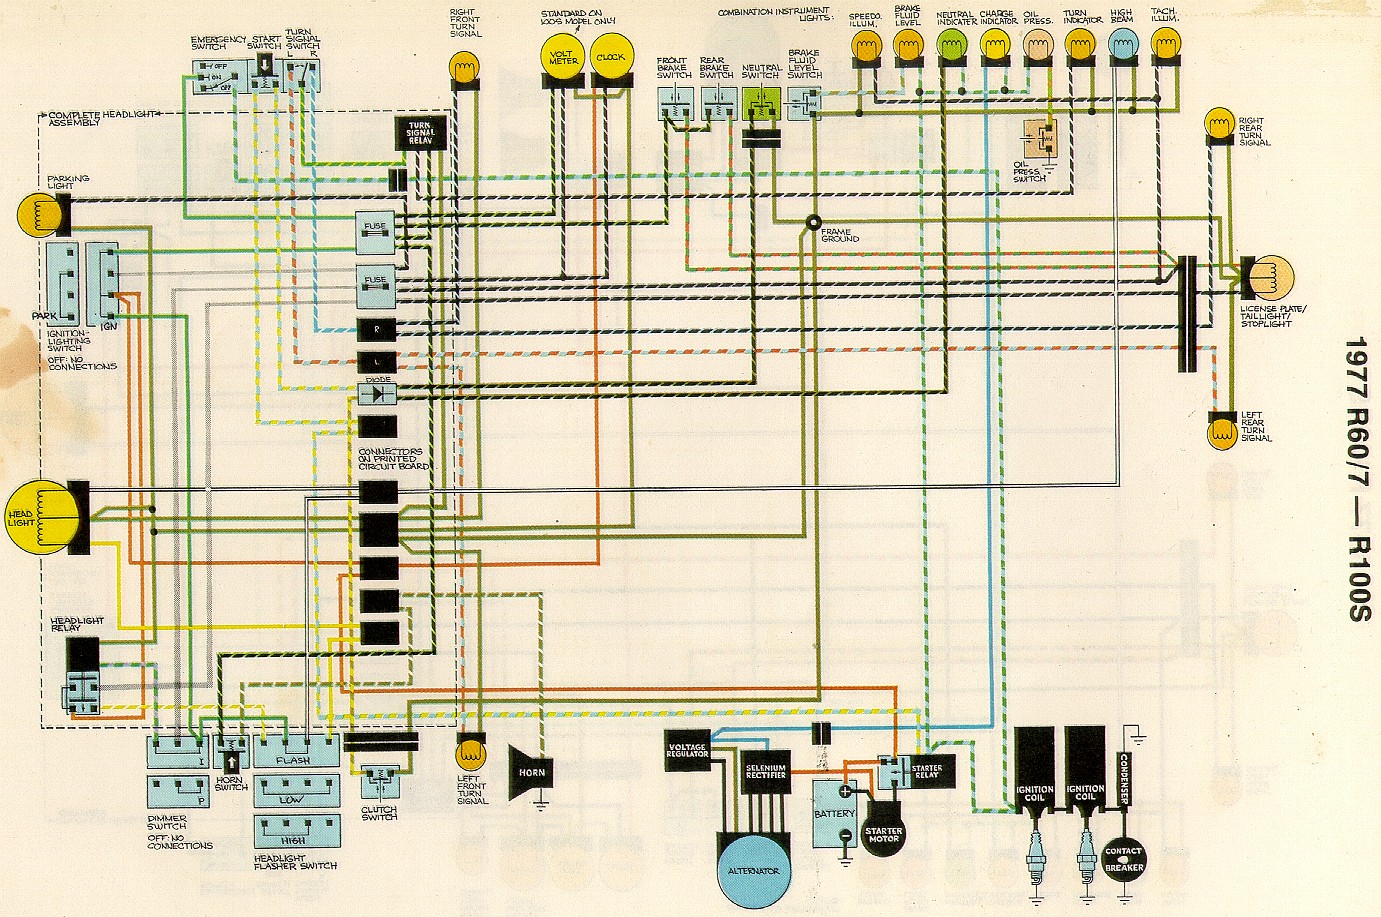 EMERGENCY
SWITCH
START
SWITCH
TURN
SIGNAL
SWITCH
L R
OFF
ON
OFF
RIGHT
FRONT
TURN
SIGNAL
STANDARD ON
100S MODEL ONLY
VOLT
METER
CLOCK
COMBINATION INSTRUMENT
LIGHTS:
SPEEDO.
ILLUM.
BRAKE
FLUID
LEVEL
NEUTRAL
INDICATER
CHARGE
INDICATOR
OIL
PRESS.
TURN
INDICATOR
HIGH
BEAM
TACH.
ILLUM.
FRONT
BRAKE
SWITCH
REAR
BRAKE
SWITCH
NEUTRAL
SWITCH
BRAKE
FLUID
LEVEL
SWITCH
COMPLETE HEADLIGHT
ASSEMBLY
TURN
SIGNAL
RELAY
OIL
PRESS.
SWITCH
RIGHT
REAR
TURN
SIGNAL
PARKING
LIGHT
FUSE
FRAME
GROUND
FUSE
PARK
IGN
IGNITION-
LIGHTING
SWITCH
OFF: NO
CONNECTIONS
R
L
DIODE
LICENSE PLATE/
TAILLIGHT/
STOPLIGHT
1977 R60/7 — R100S
CONNECTORS
ON PRINTED
CIRCUIT BOARD
LEFT
REAR
TURN
SIGNAL
HEAD
LIGHT
HEADLIGHT
RELAY
I
P
DIMMER
SWITCH
OFF: NO
CONNECTIONS
HORN
SWITCH
FLASH
LOW
HIGH
HEADLIGHT
FLASHER SWITCH
CLUTCH
SWITCH
LEFT
FRONT
TURN
SIGNAL
HORN
VOLTAGE
REGULATOR
SELENIUM
RECTIFIER
ALTERNATOR
BATTERY
STARTER
RELAY
STARTER
MOTOR
IGNITION
COIL
IGNITION
COIL
CONDENSER
CONTACT
BREAKER